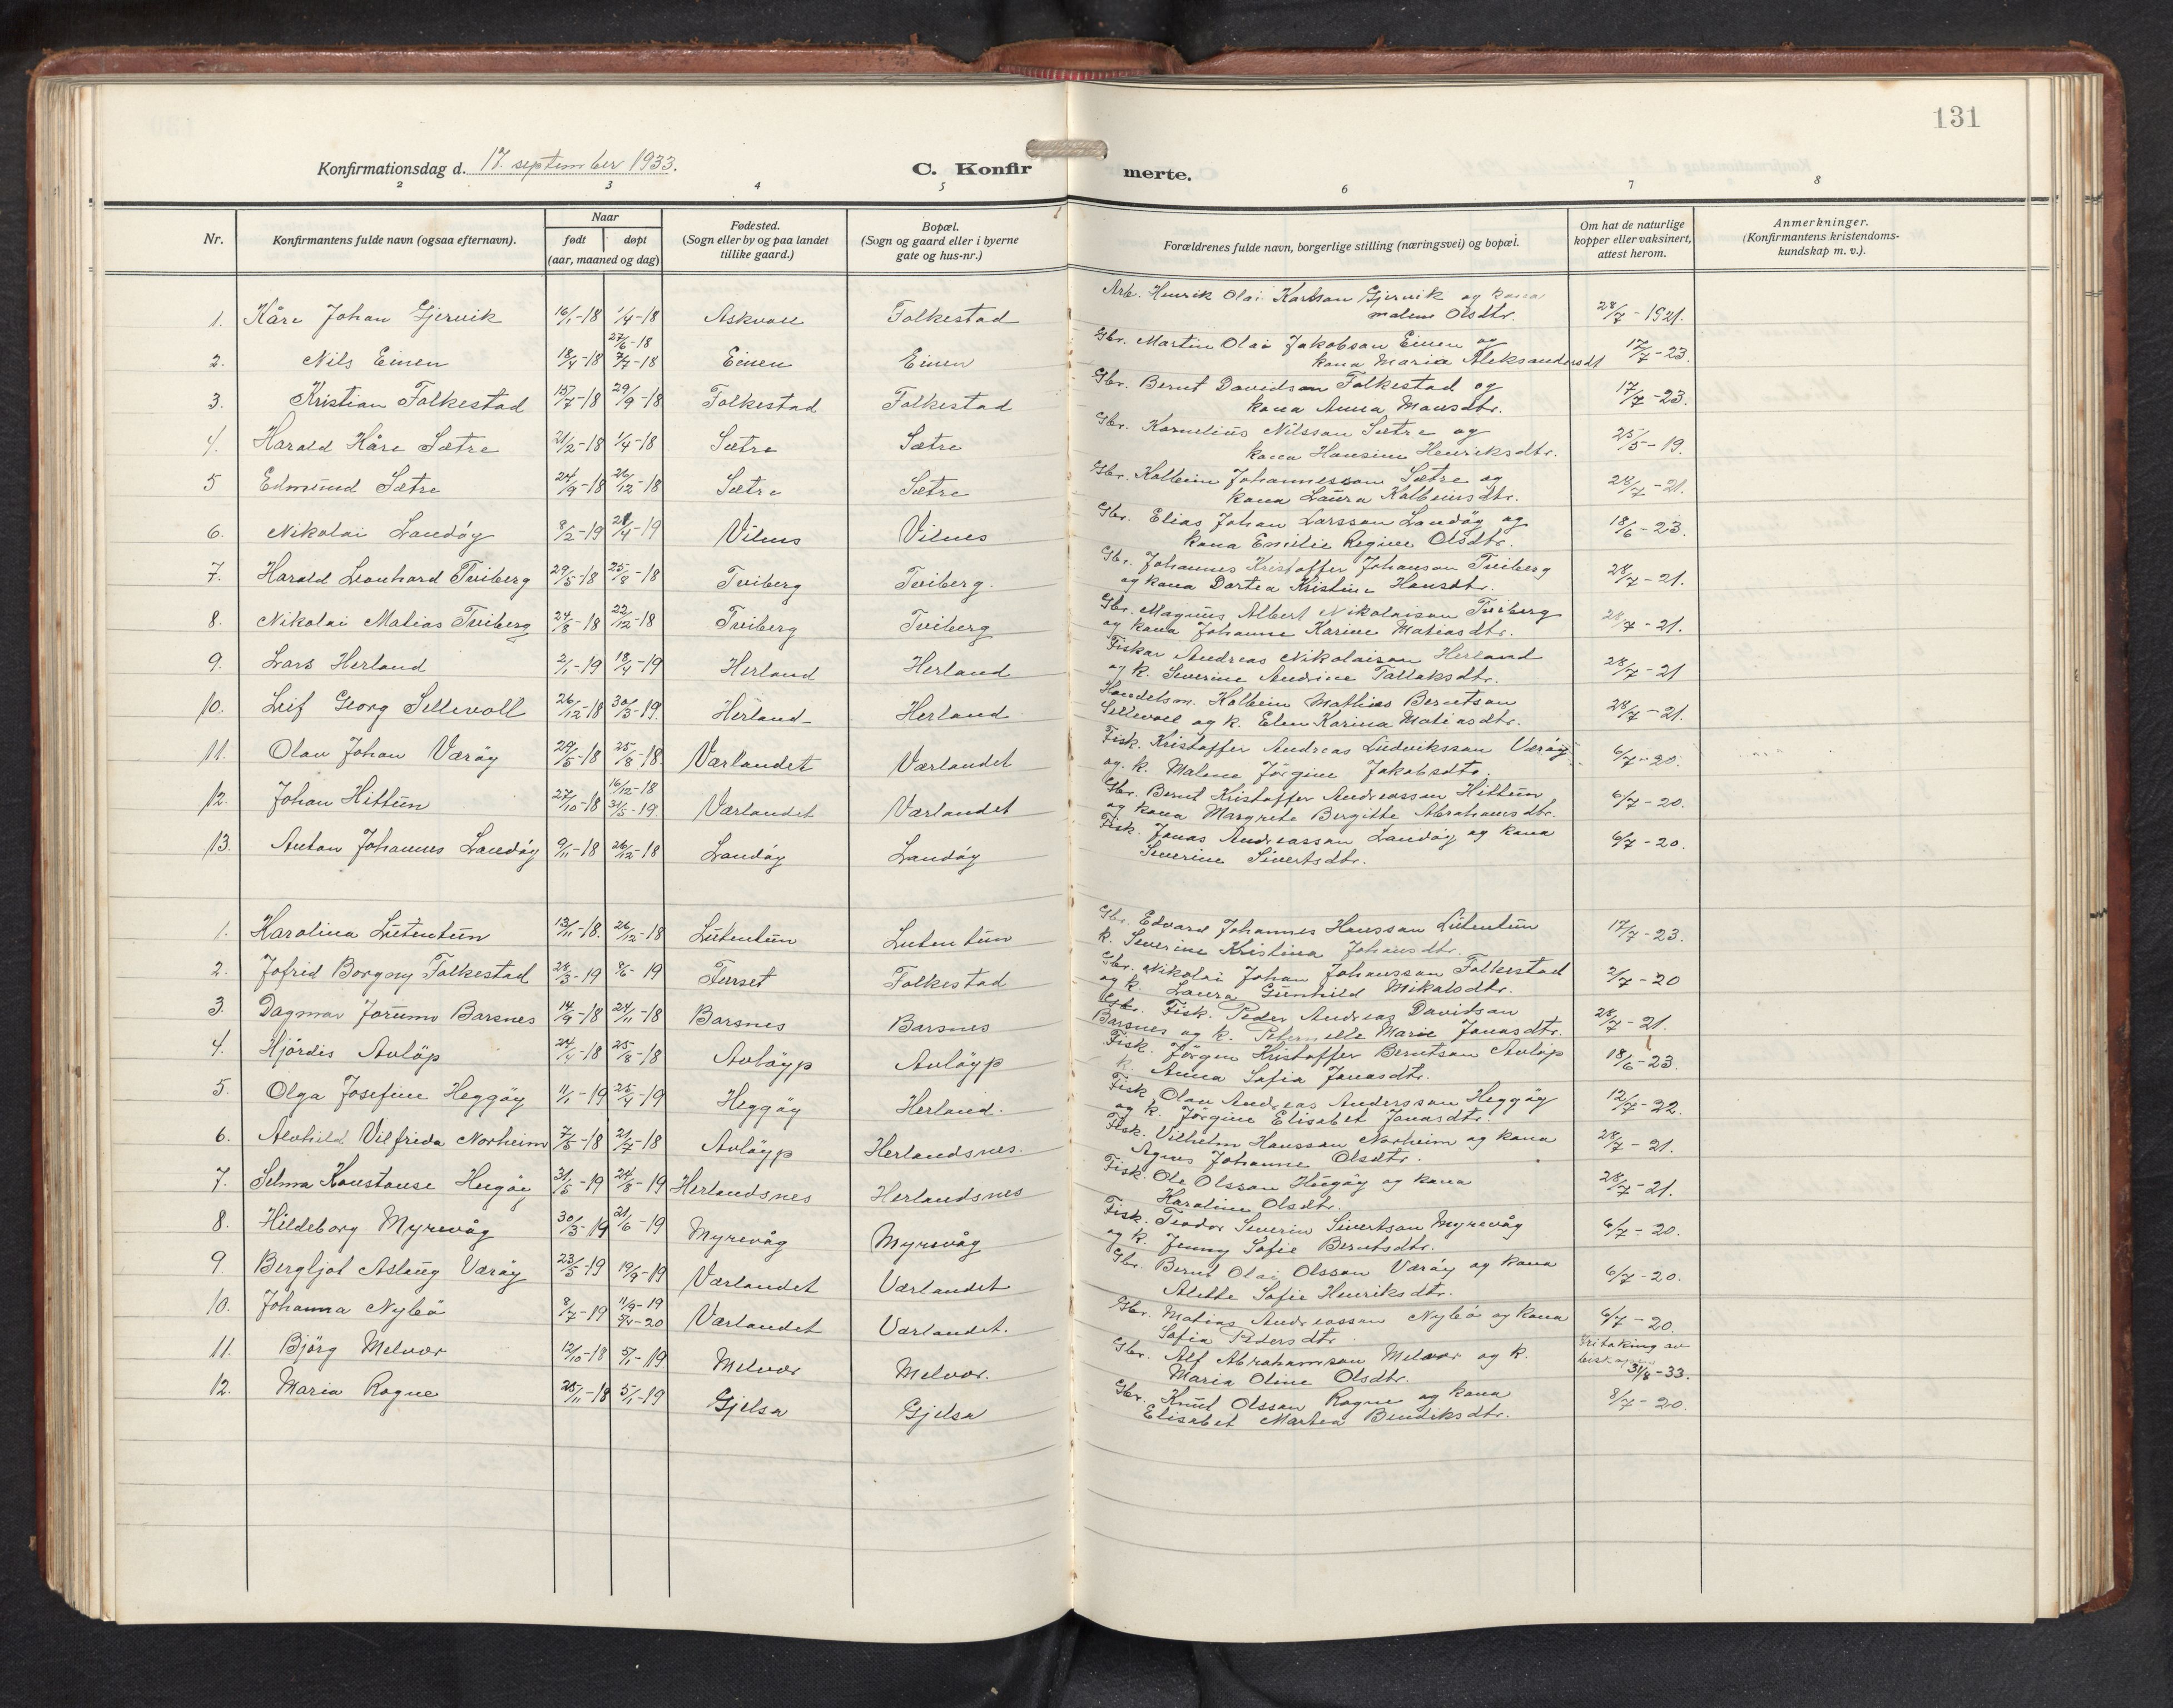 131
Konfirmationsdag d. 17. september 1933.
C. Konfirmerte.
2 3 4 5 6 7 8
Nr.
Konfirmantens fulde navn (ogsaa efternavn).
Naar
født
døpt
(aar, maaned og dag)
Fødested.
(Sogn eller by og paa landet
tillike gaard.)
Bopæl.
(Sogn og gaard eller i byerne
gate og hus-nr.)
Forældrenes fulde navn, borgerlige stilling (næringsvei) og bopæl.
Om hat de naturlige
kopper eller vaksinert,
attest herom.
Anmerkninger.
(Konfirmantens kristendoms-
kundskap m. v.).
1. Kåre Johan Gjervik 16/1-18 1/4-18 Askvoll Folkestad Arb. Henrik Olai Karlson Gjervik og kona
Malene Olsdtr. 28/7-1921.
2. Nils Einen 18/4-18 27/6-18 7/7-18 Einen Einen Gbr. Martin Olai Jakobson Einen og
kona Maria Aleksandersdt 17/7-23.
3. Kristian Folkestad 15/7-18 29/9-18 Folkestad Folkestad Gbr. Bernt Davidson Folkestad og
kona Anna Monsdtr. 17/7-23.
4. Harald Kåre Sætre 21/2-18 1/4-18 Sætre Sætre Gbr. Kornelius Nilsson Sætre og
kona Hansine Henriksdtr. 25/5-19.
5 Edmund Sætre 24/9-18 26/12-18 Sætre Sætre Gbr. Kolbein Johannesson Sætre og
kona Laura Kolbeinsdtr. 28/7-21.
6. Nikolai Landøy 8/2-19 21/4-19 Vilnes Vilnes Gbr. Elias Johan Larsson Landøy og
kona Emilie Regine Olsdtr. 18/6-23.
7. Harald Leonhard Tviberg 29/5-18 25/8-18 Tviberg Tviberg. Gbr. Johannes Kristoffer Johanson Tviberg
og kona Dortea Kristine Hansdtr. 28/7-21.
8. Nikolai Matias Tviberg 24/8-18 22/12-18 Tviberg Tviberg Gbr. Magnus Albert Nikolaison Tviberg
og kona Johanne Karine Matiasdtr. 28/7-21.
9. Lars Herland 2/1-19 18/4-19 Herland Herland Fiskar Andreas Nikolaison Herland
og k. Severine Andrine Tollaksdtr. 28/7-21
10. Leif Georg Sellevoll 26/12-18 30/3-19. Herland Herland Handelsm. Kolbein Mathias Berntson
Sellevoll og k. Elen Karina Matiasdtr. 28/7-21.
11. Olav Johan Værøy 29/5-18 25/8-18. Værlandet Værlandet Fisk. Kristoffer Andreas Ludviksson Værøy
og. k. Malene Jørgine Jakobsdtr. 6/7-20.
12. Johan Hittun 27/10-18 16/12-18 31/5-19. Værlandet Værlandet Gbr. Bernt Kristoffer Andreasson Hittun
og kona Margrete Bergitte Abrahamsdtr. 6/7-20.
13. Anton Johannes Landøy 9/11-18 26/12-18 Landøy Landøy Fisk. Jonas Andreasson Landøy og kona
Severine Sivertsdtr. 6/7-20.
1. Karolina Lutentun 13/11-18. 26/12-18 Lutentun Lutentun Gbr. Edvard Johannes Hansson Lutentun
k. Severine Kristina Johansdtr. 17/7-23.
2. Jofrid Borgny Folkestad 28/3-19 8/6-19 Furset Folkestad Gbr. Nikolai Johan Johansson Folkestad
og k. Laura Gunhild Mikalsdtr. 2/7-20
3. Dagmar Jorunn Barsnes 14/9-18 24/11-18 Barsnes Barsnes Gbr. Fisk. Peder Andreas Davidson
Barsnes og k. Peternelle Marie Jonasdtr. 28/7-21.
4. Hjørdis Avløp 24/4-18 25/8-18 Avløyp Avløyp Fisk. Jørgen Kristoffer Berntson Avløp
k. Anna Sofia Jonasdtr. 18/6-23.
5. Olga Josefine Heggøy 11/1-19 25/4-19 Heggøy Herland. Fisk Olav Andreas Andersson Heggøy
og k. Jørgine Elisabet Jonasdtr. 12/7-22.
6. Alvhild Vilfrida Norheim 7/5-18 21/7-18 Avløyp Herlandsnes. Fisk. Vilhelm Hansson Norheim og kona
Agnes Johanne Olsdtr. 28/7-21.
7. Selma Konstanse Hegøy 31/5-19 24/8-19 Herlandsnes Herlandsnes Fisk. Ole Olsson Hegøy og kona
Karoline Olsdtr. 28/7-21.
8. Hildeborg Myrevåg 30/3-19 21/6-19 Myrevåg Myrevåg Fisk. Teodor Severin Sivertson Myrevåg
og k. Jenny Sofie Berntsdtr. 6/7-20.
9 Bergljot Aslaug Værøy 23/5-19 19/9-19 Værlandet Værlandet Gbr. Bernt Olai Olsson Værøy og kona
Alette Sofie Henriksdtr. 6/7-20.
10. Johanna Nybø 8/7-19 11/9-19 5/4-20 Værlandet Værlandet. Gbr. Matias Andreasson Nybø og kona
Sofia Pedersdtr. 6/7-20.
11. Bjørg Melvær 12/10-18 5/1-19 Melvær Melvær. Gbr. Alf Abrahamson Melvær og k.
Maria Oline Olsdtr. Fritaking av
biskopen 31/8-33.
12. Maria Rogne 25/11-18 5/1-19 Gjelsa Gjelsa Gbr. Knut Olsson Rogne og kona
Elisabet Martea Bendiksdtr. 8/7-20.